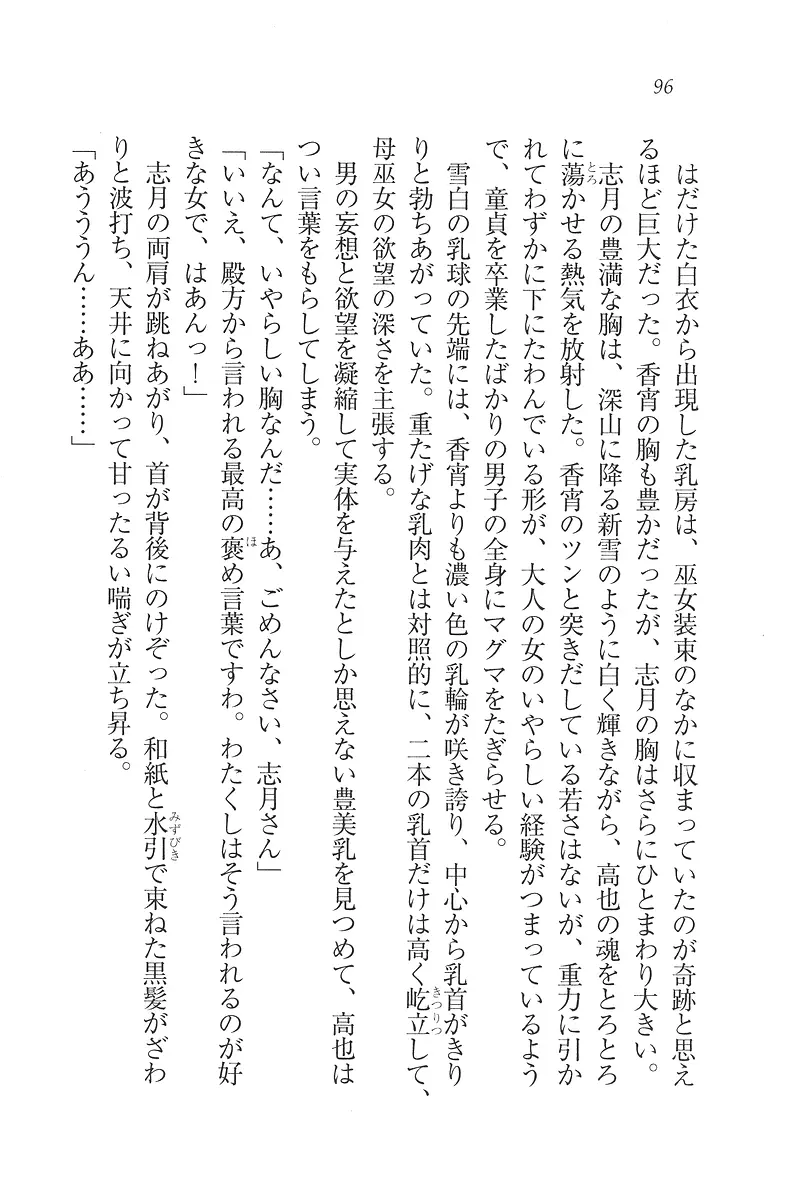 96
はだけた白衣から出現した乳房は、巫女装束のなかに収まっていたのが奇跡と思え
るほど巨大だった。香宵の胸も豊かだったが、志月の胸はさらにひとまわり大きい。
志月の豊満な胸は、深山に降る新雪のように白く輝きながら、高也の魂をとろとろ
に蕩かせる熱気を放射した。香宵のツンと突きだしている若さはないが、重力に引か
れてわずかに下にたわんでいる形が、大人の女のいやらしい経験がつまっているよう
で、童貞を卒業したばかりの男子の全身にマグマをたぎらせる。
雪白の乳球の先端には、香宵よりも濃い色の乳輪が咲き誇り、中心から乳首がきり
りと勃ちあがっていた。重たげな乳肉とは対照的に、二本の乳首だけは高く屹立して、
母巫女の欲望の深さを主張する。
男の妄想と欲望を凝縮して実体を与えたとしか思えない豊美乳を見つめて、高也は
つい言葉をもらしてしまう。
「なんて、いやらしい胸なんだ……あ、ごめんなさい、志月さん」
「いいえ、殿方から言われる最高の褒め言葉ですわ。わたくしはそう言われるのが好
きな女で、はあんっ！」
志月の両肩が跳ねあがり、首が背後にのけぞった。和紙と水引で束ねた黒髪がざわ
りと波打ち、天井に向かって甘ったるい喘ぎが立ち昇る。
「あううん……ああ……」